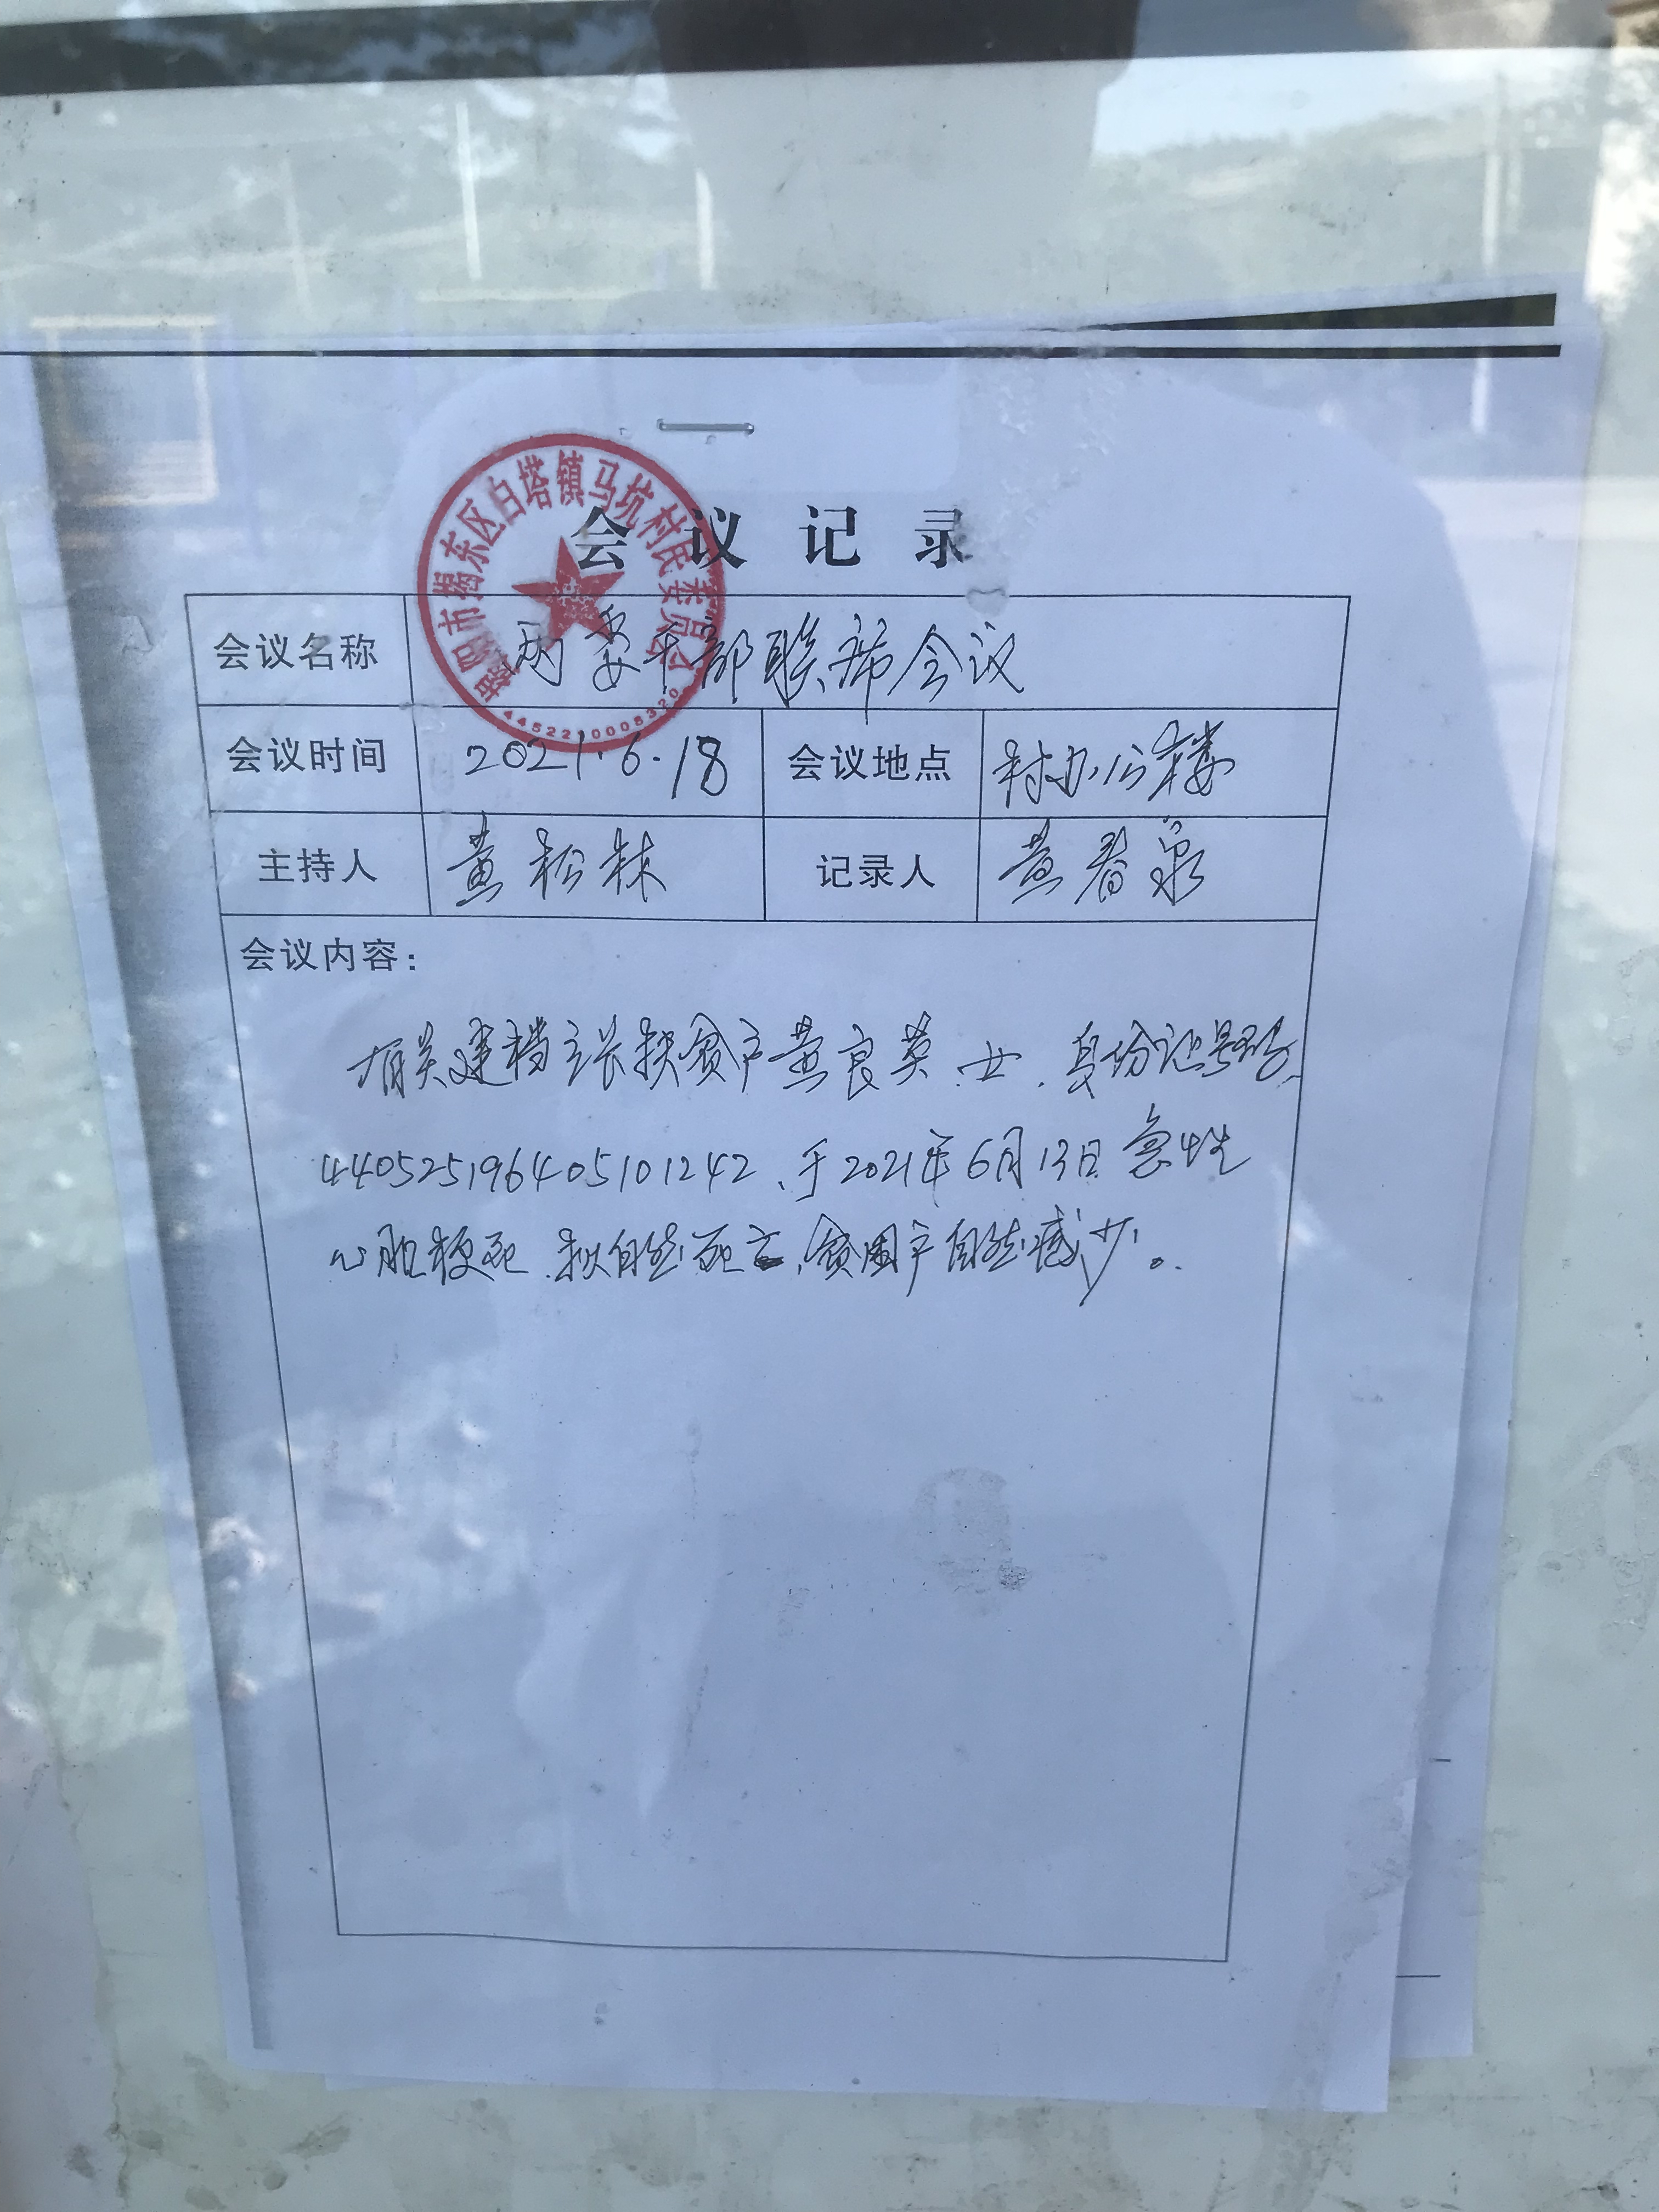 揭阳市揭东区白塔镇马坑村民委员会
4452210008320
会议记录
会议名称 两委干部联席会议
会议时间 2021.6.18 会议地点 村办公楼
主持人 黄松林 记录人 黄春泉
会议内容:
有关建档立卡扶贫户黄良英、女、身份证号码、
440525196405101242、于2021年6月13日急性
心肌梗死、拟自然死亡、贫困户自然减少。